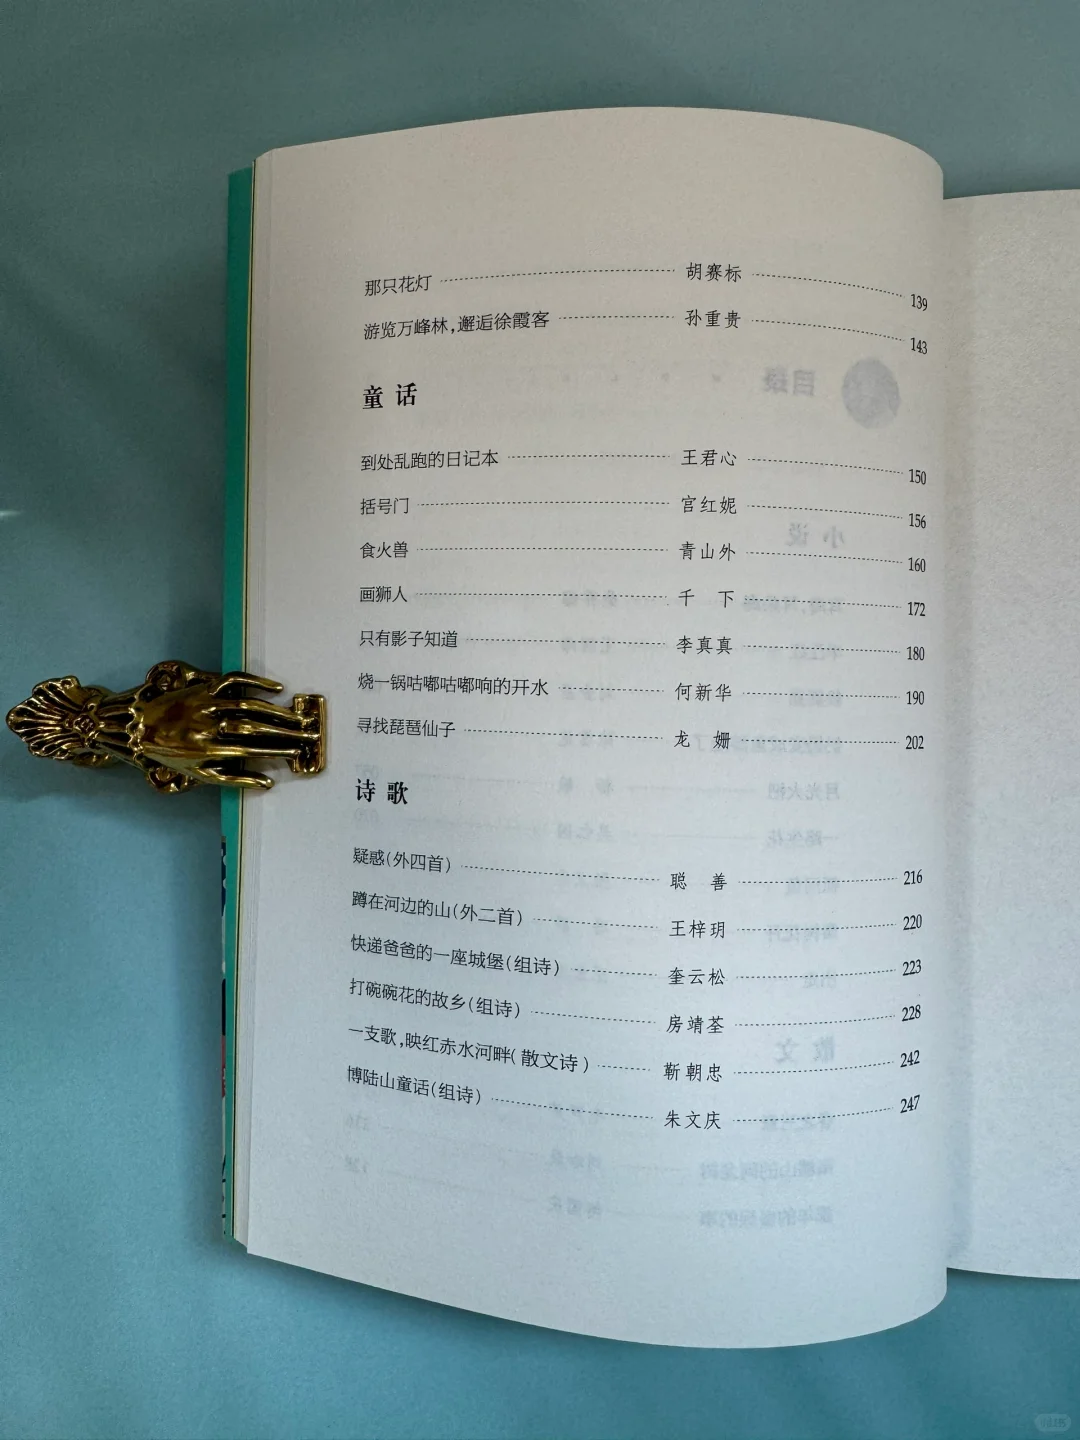 那只花灯 胡赛标 139
游览万峰林,邂逅徐霞客 孙重贵 143
童话
到处乱跑的日记本 王君心 150
括号门 宫红妮 156
食火兽 青山外 160
画狮人 千 下 172
只有影子知道 李真真 180
烧一锅咕嘟咕嘟响的开水 何新华 190
寻找琵琶仙子 龙 姗 202
诗歌
疑惑(外四首) 聪 善 216
蹲在河边的山(外二首) 王梓玥 220
快递爸爸的一座城堡(组诗) 奎云松 223
打碗碗花的故乡(组诗) 房靖荃 228
一支歌,映红赤水河畔(散文诗) 靳朝忠 242
博陆山童话(组诗) 朱文庆 247
目录
小说
散文